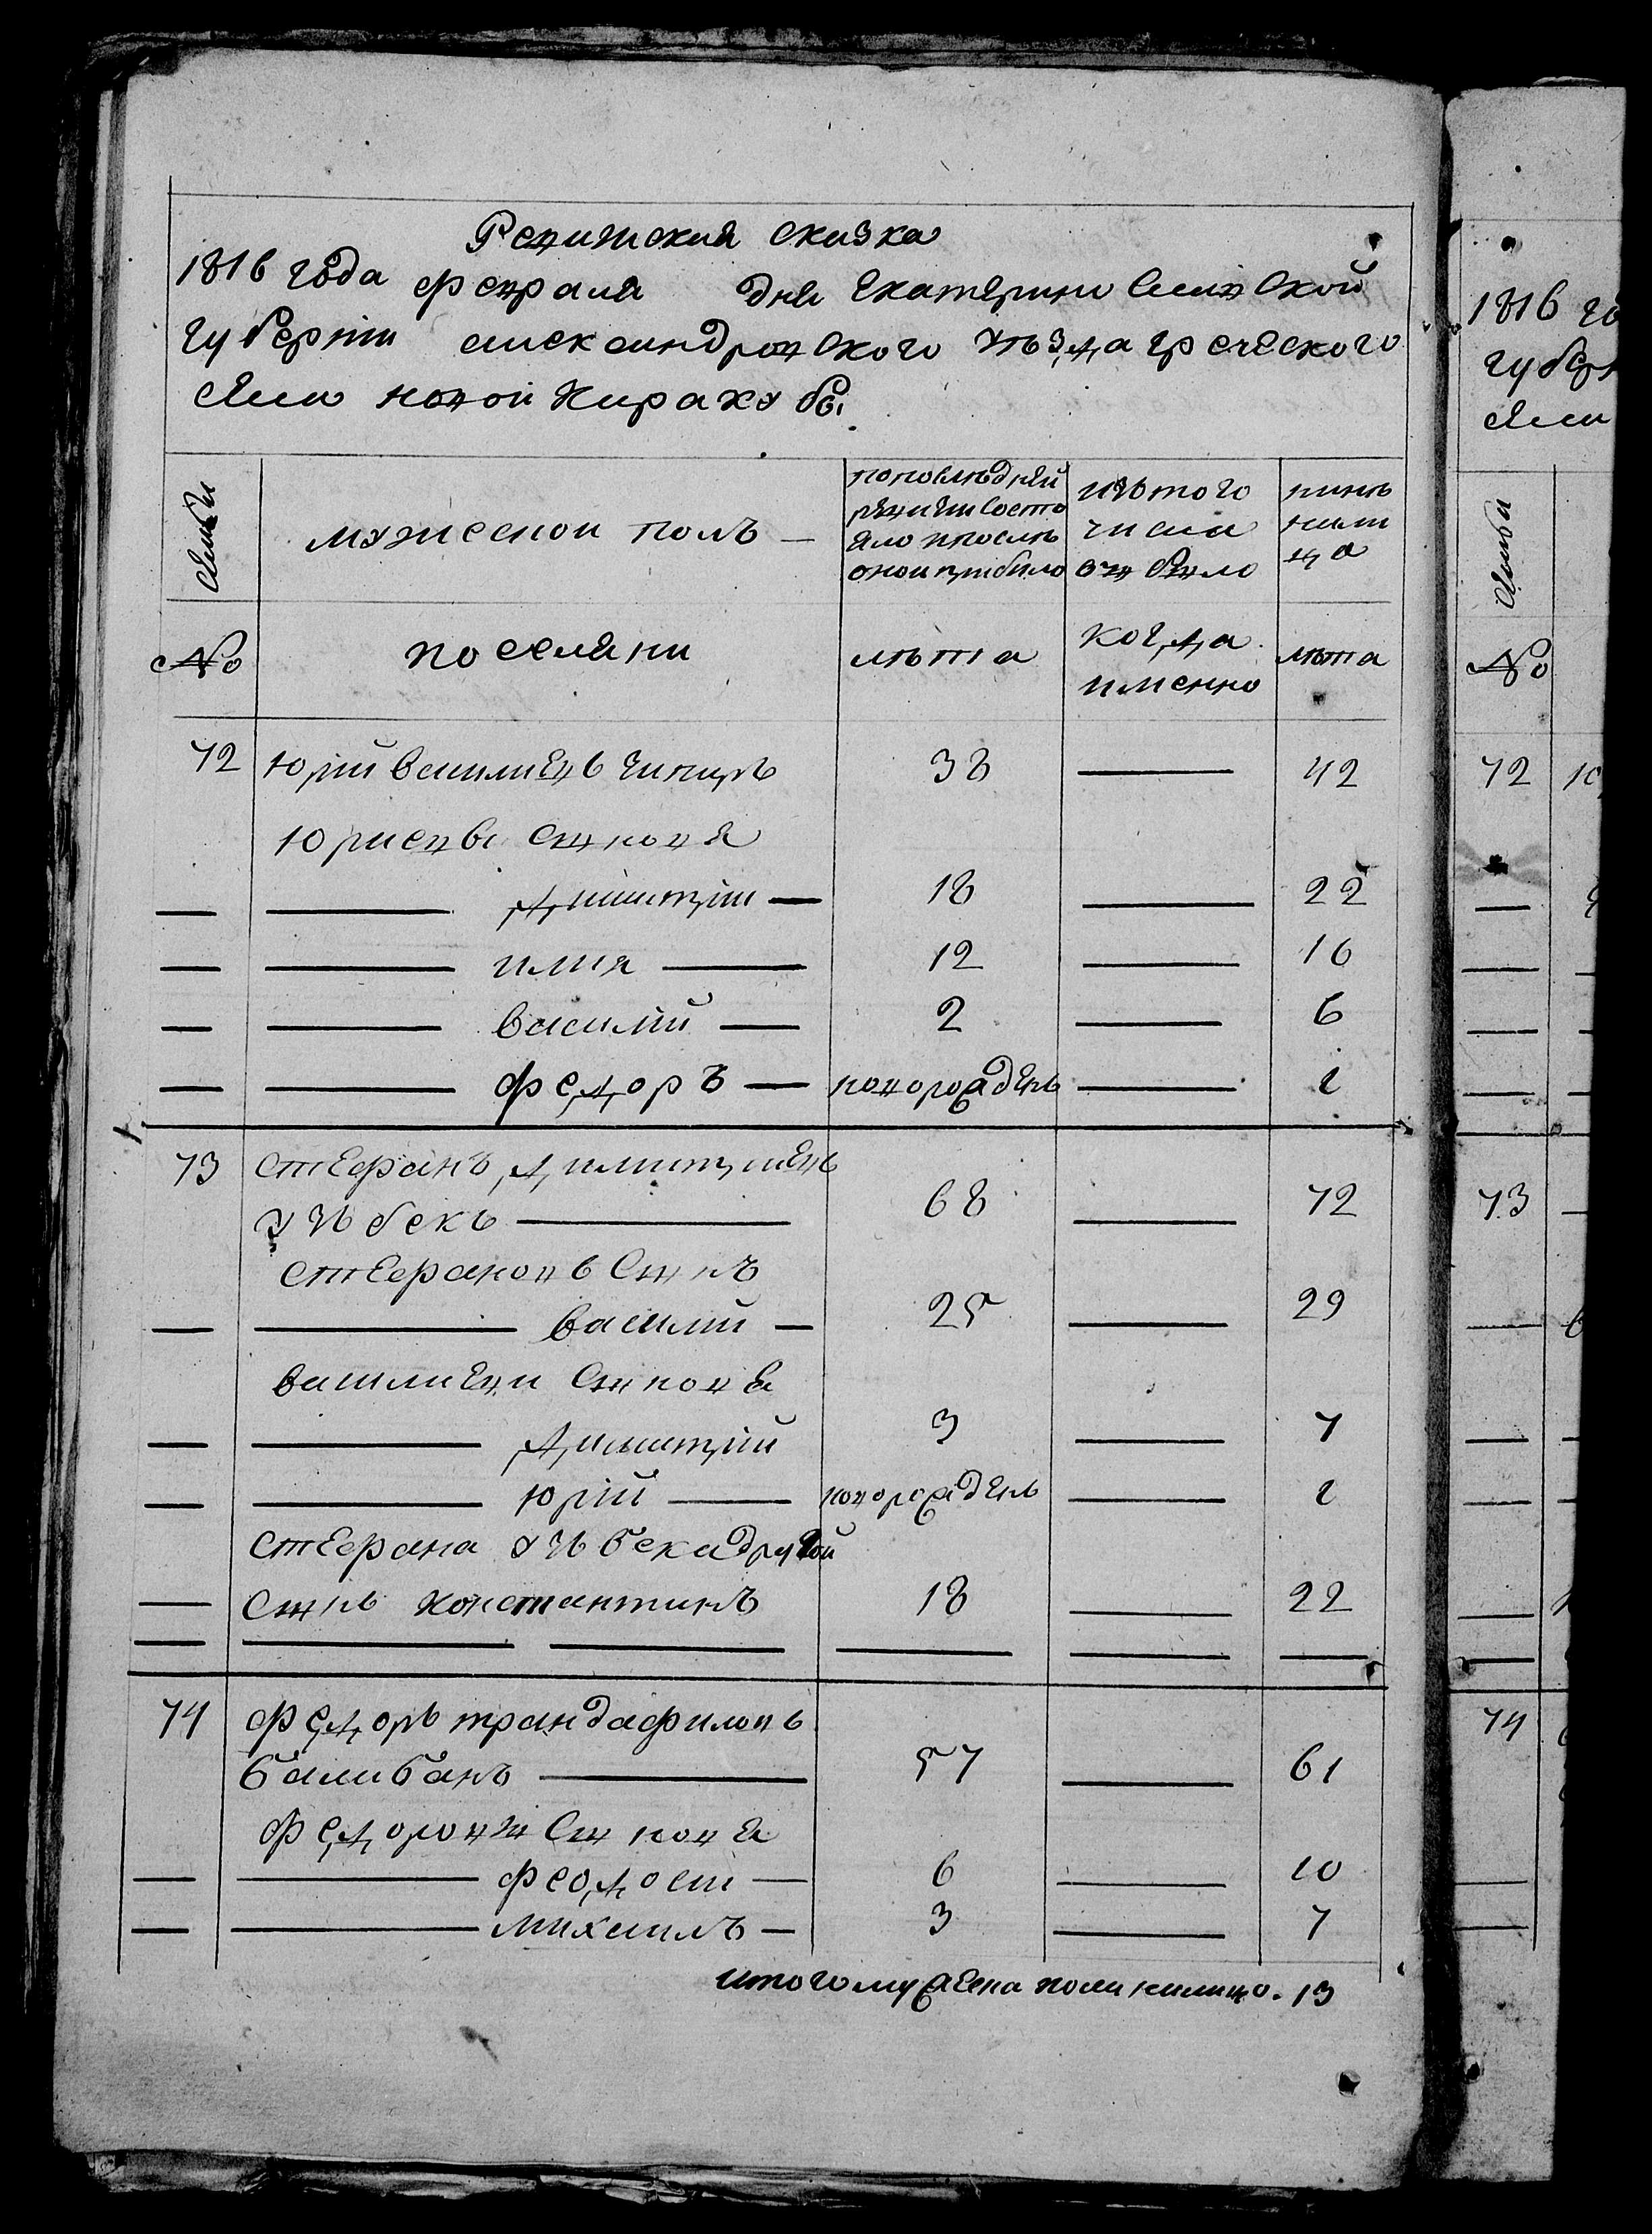 Ревижская сказка
1816 года февраля дня екатеринославской
губерніи александровского уѣзда греческого
села новой Каракубы.
семьи
мужескои полъ —
попоследней
ревизіи состо
яло ипослѣ
оной прибыло
изътого
числа
выбыло
нынѣ
нали
цо
№
поселяни
лѣта
когда
именно
лѣта
72 Юрій василиевъ Чинаръ 38 — 42
Юриевы сынов я
— — Димитрій — 18 — 22
— — илия — 12 — 16
— — василій — 2 — 6
— — федоръ — новорожденъ — 2
73 стефанъ димитриевъ
узъбекъ — 68 — 72
стефановъ сынъ
— — василий — 25 — 29
василиеви сыновя
— — димитрій 3 — 7
— — юрій — новорожденъ — 2
стефана узъбека другой
— сынъ константинъ 18 — 22
74 федоръ трандафиловъ
балабанъ — 57 — 61
федоровы сыновя
— — феодосій — 6 — 10
— — михаилъ — 3 — 7
итого мужеска пола налицо. 13
1816 го
губерн
села
семьи
№
72 Ю
73
74